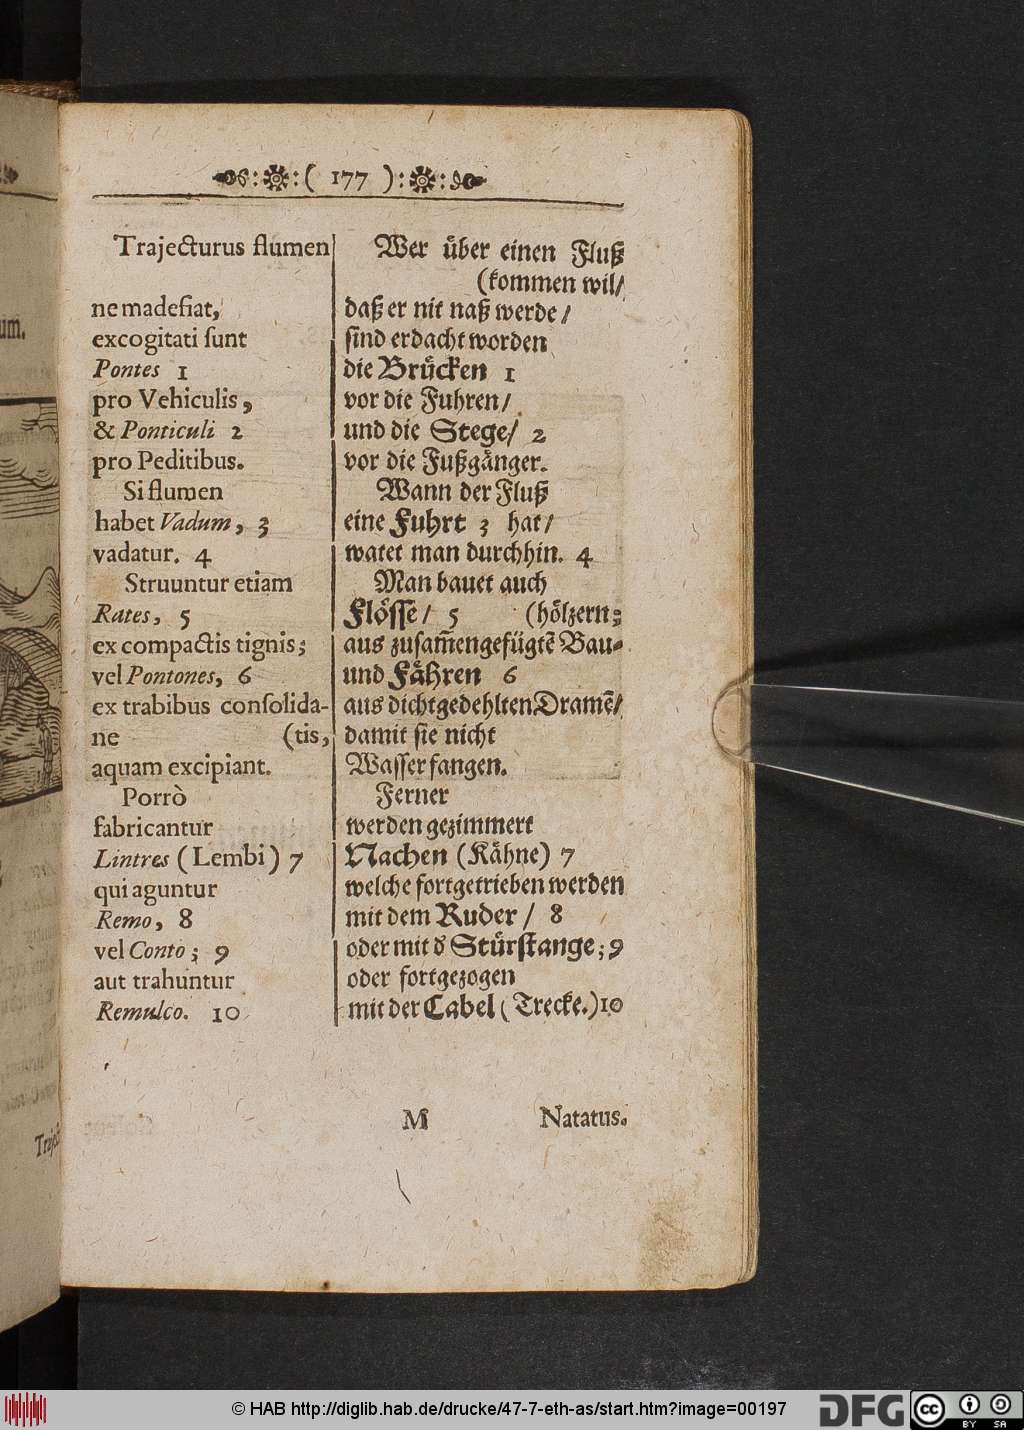 ( 177 )
Trajecturus flumen
ne madefiat,
excogitati ſunt
Pontes 1
pro Vehiculis,
& Ponticuli 2
pro Peditibus.
Si flumen
habet Vadum, 3
vadatur. 4
Struuntur etiam
Rates, 5
ex compactis tignis;
vel Pontones, 6
ex trabibus conſolida-
ne (tis,
aquam excipiant.
Porrò
fabricantur
Lintres (Lembi) 7
qui aguntur
Remo, 8
vel Conto; 9
aut trahuntur
Remulco. 10
Wer uͤber einen Fluß
(kommen wil/
daß er nit naß werde/
ſind erdacht worden
die Bruͤcken 1
vor die Fuhren/
und die Stege/ 2
vor die Fußgaͤnger.
Wann der Fluß
eine Fuhrt 3 hat/
watet man durchhin. 4
Man bauet auch
Floͤſſe/ 5 (hoͤlzern;
aus zuſam̃engefuͤgtẽ Bau-
und Faͤhren 6
aus dichtgedehlten Dramẽ/
damit ſie nicht
Waſſer fangen.
Ferner
werden gezimmert
Nachen (Kaͤhne) 7
welche fortgetrieben werden
mit dem Ruder/ 8
oder mit d' Stuͤrſtange; 9
oder fortgezogen
mit der Cabel (Trecke.) 10
M Natatus.
um.
© HAB http://diglib.hab.de/drucke/47-7-eth-as/start.htm?image=00197
DFG
cc BY SA